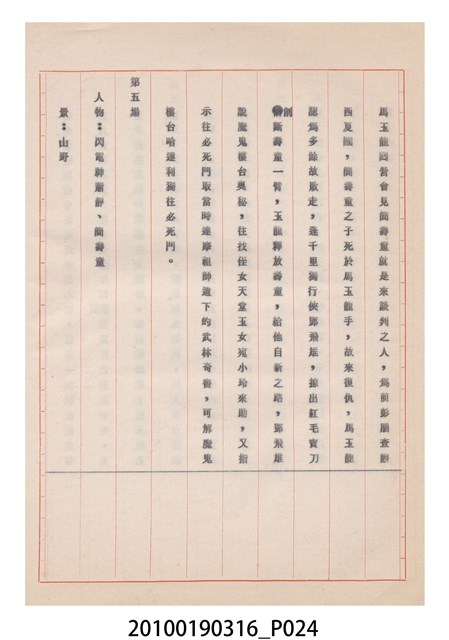 馬玉龍回營會見簡壽童就是來談判之人，為前彭朋查辦
西夏國，簡壽童之子死於馬玉龍手，故來復仇，馬玉龍
認為多餘故敗走，逢千里獨行俠鄧飛雄，掠出紅毛寶刀
削斷壽童一臂，玉龍釋放壽童，給他自新之路，鄧飛雄
說魔鬼樓台奧秘，往找任女天堂玉女宛小玲來助，又指
示往必死門取當時達摩祖師遺下的武林奇書，可解魔鬼
樓台哈達利獨往必死門。
第五場
人物：閃電神蕭靜、簡壽童
景：山野
20100190316_P024